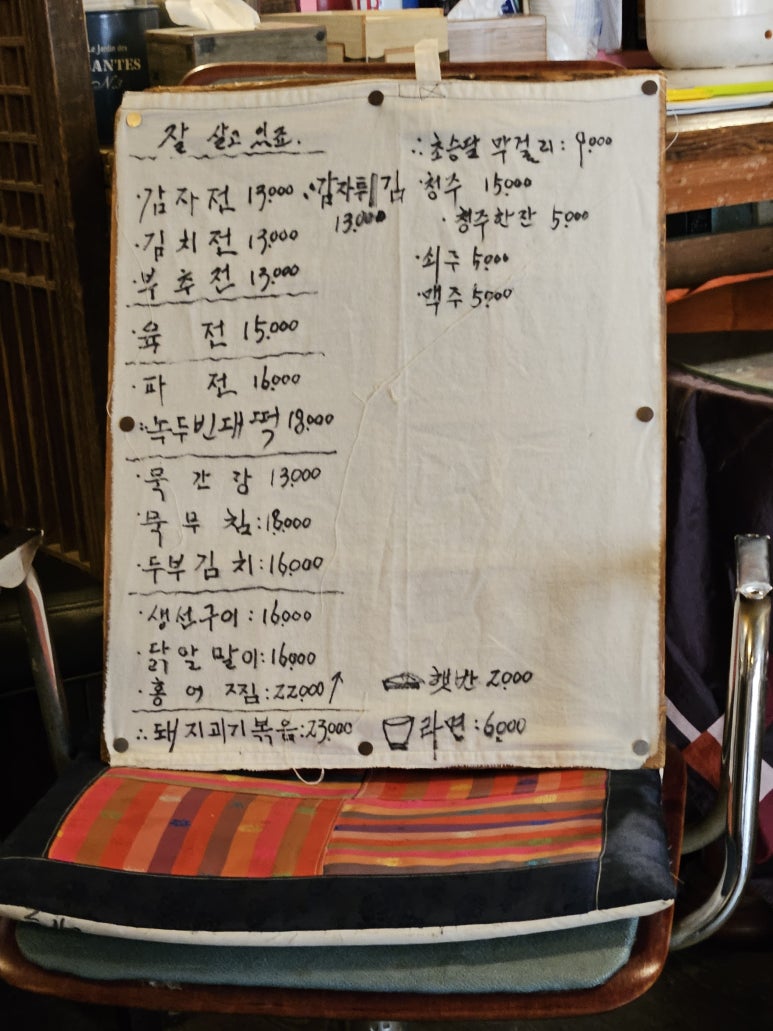 Le Jardin des
ANTES
잘 살고 있죠.
·감자전 13,000
∴감자튀김
13,000
·김치전 13,000
·부추전 13,000
·육전 15,000
·파전 16,000
∴녹두빈대떡 18,000
·묵간장 13,000
·묵무침:18,000
·두부김치:16,000
·생선구이:16,000
·닭알말이:16,000
·홍어찜:22,000↑
∴돼지괴기볶음:23,000
∴초승달막걸리:9,000
·청주 15,000
·청주한잔 5,000
·쇠주 5,000
·맥주 5,000
햇반 2,000
라면:6,000